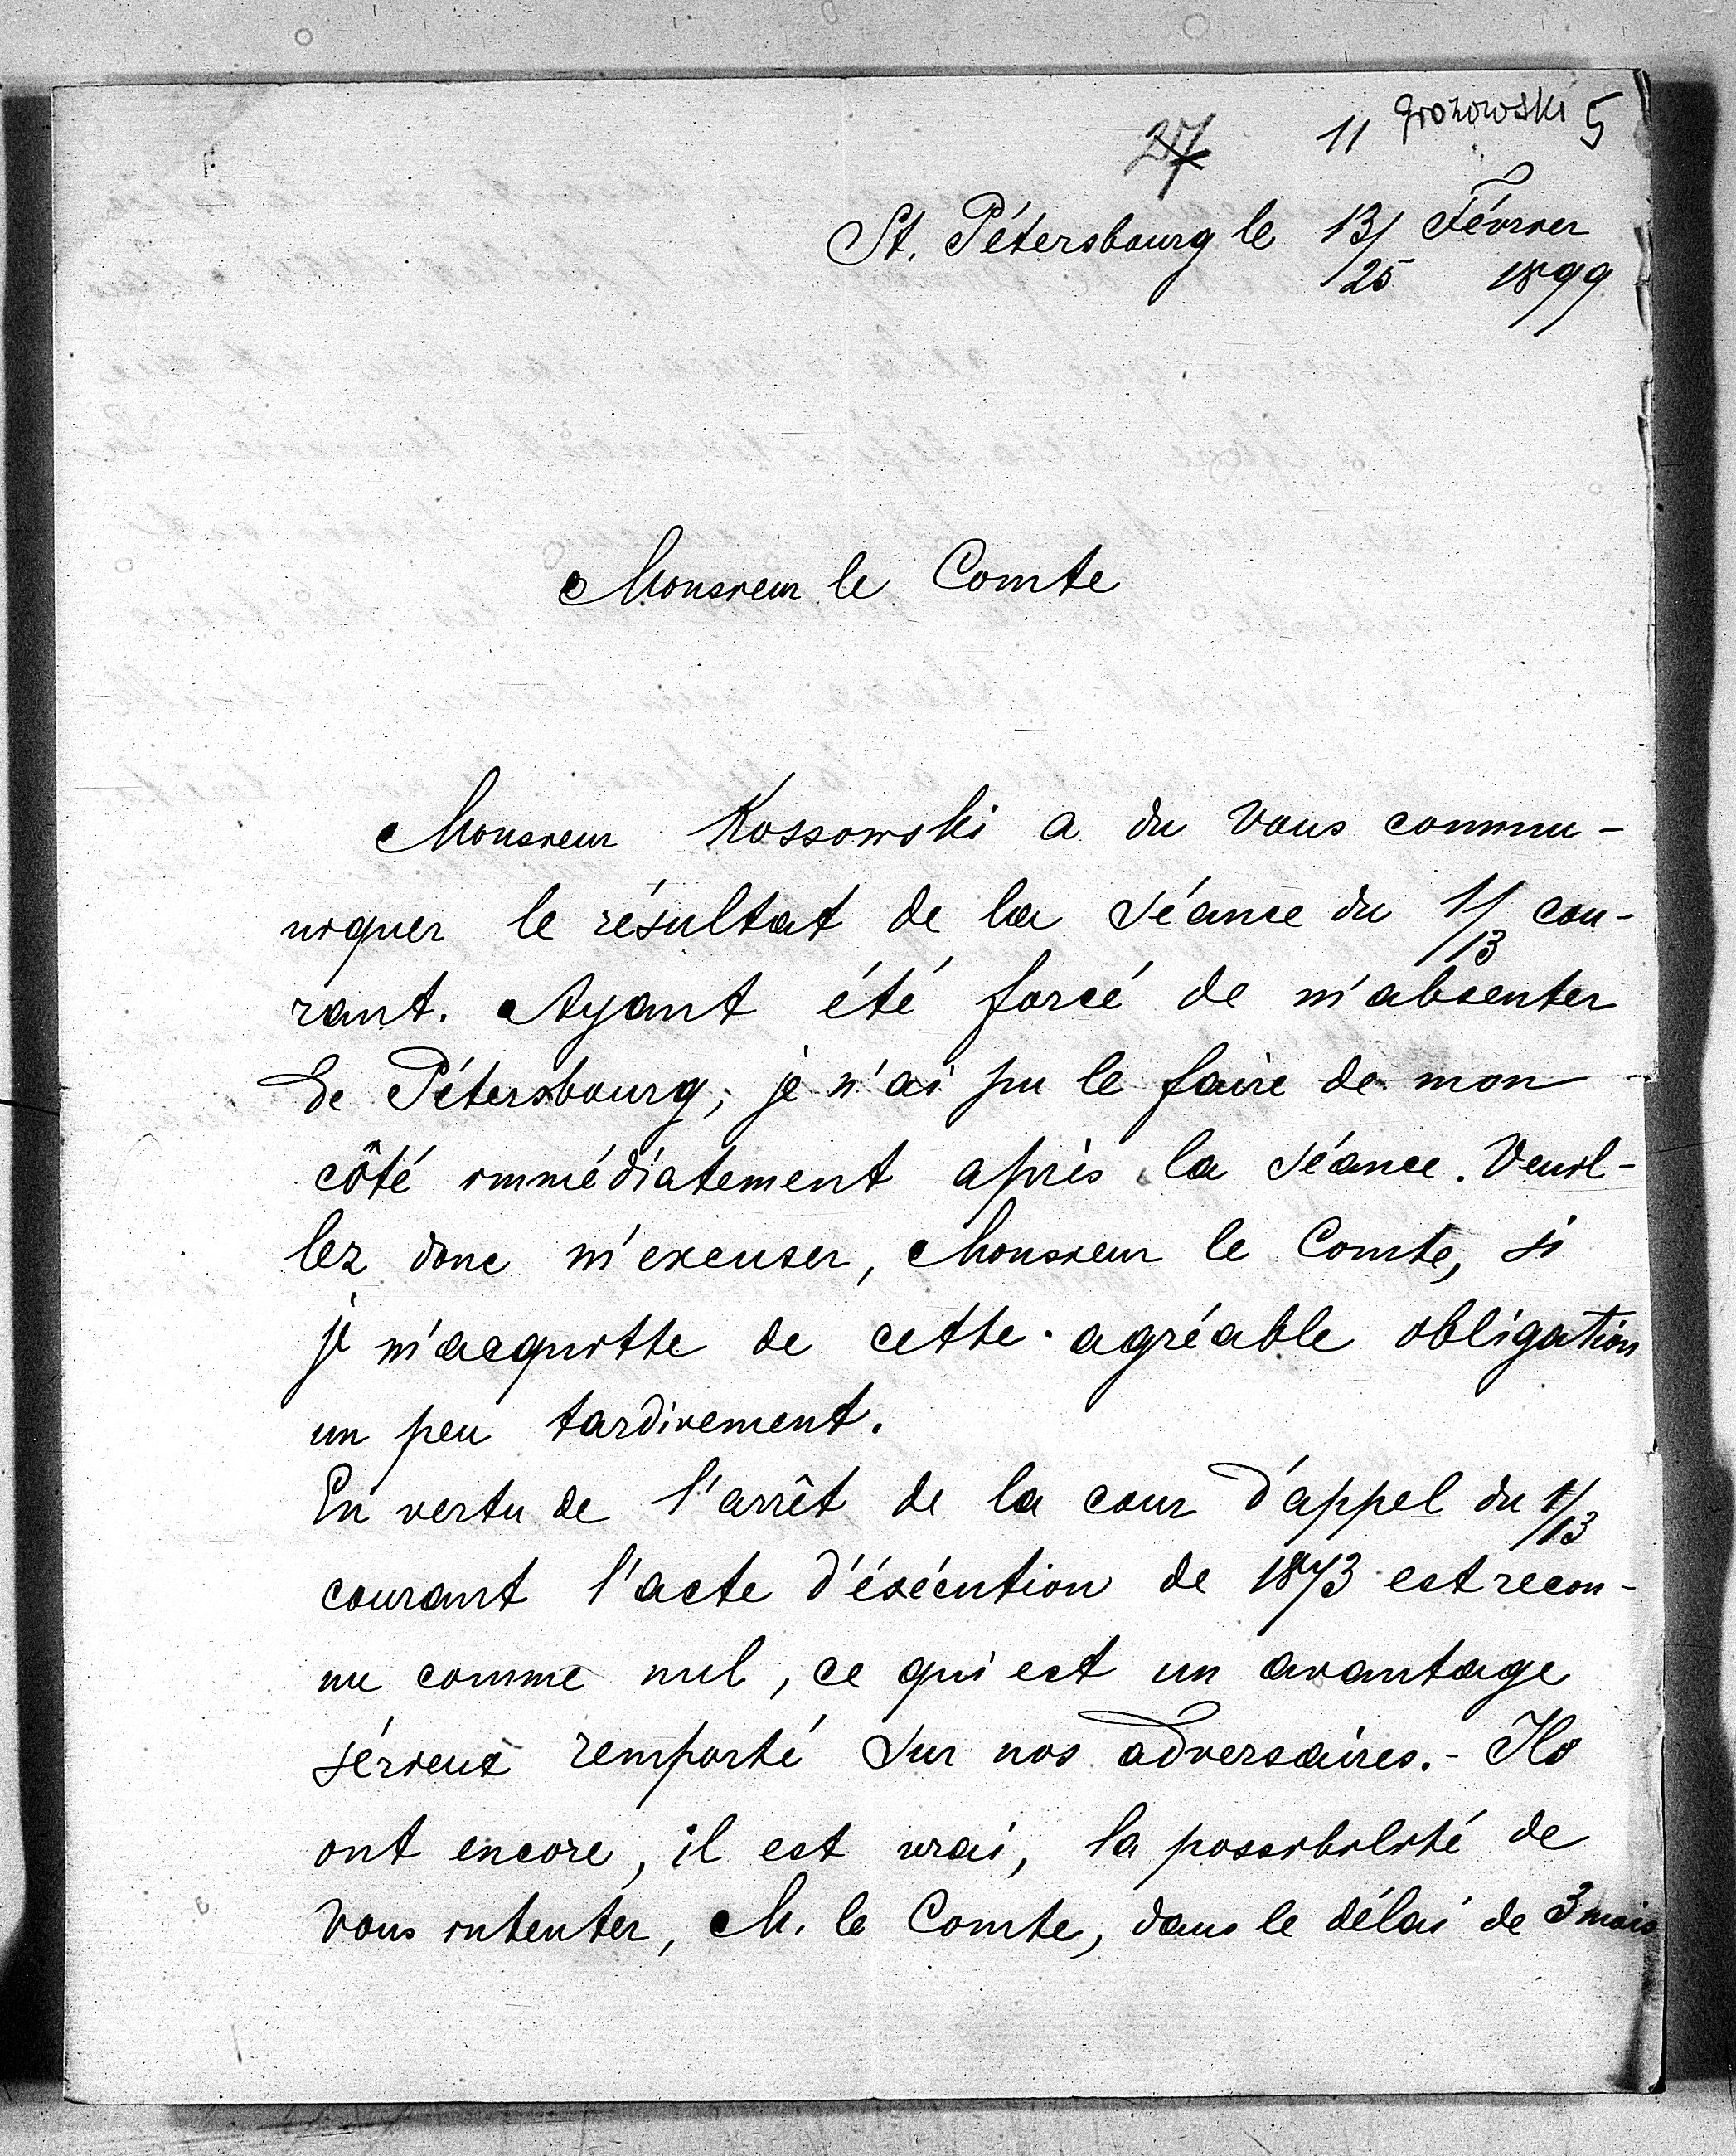 27 11 Grozowski 5
St. Pétersbourg le 13/25 Février 1899
Monsieur le Comte
Monsieur Kossowski a du vous commu-
niquer le résultat de la séance du 1/13 cou-
rant. Ayant été forcé de m'absenter
de Pétersbourg, je n'ai pu le faire de mon
côté immédiatement après la séance. Veuil-
lez donc m'excuser, Monsieur le Comte, si
je m'acquitte de cette agréable obligation
un peu tardivement.
En vertu de l'arrêt de la cour d'appel du 1/13
courant l'acte d'éxécution de 1873 est recon-
nu comme nul, ce qui est un avantage
sérieux remporté sur nos adversaires.- Ils
ont encore, il est vrai, la possibilité de
vous intenter, M. le Comte, dans le délai de 3 mois